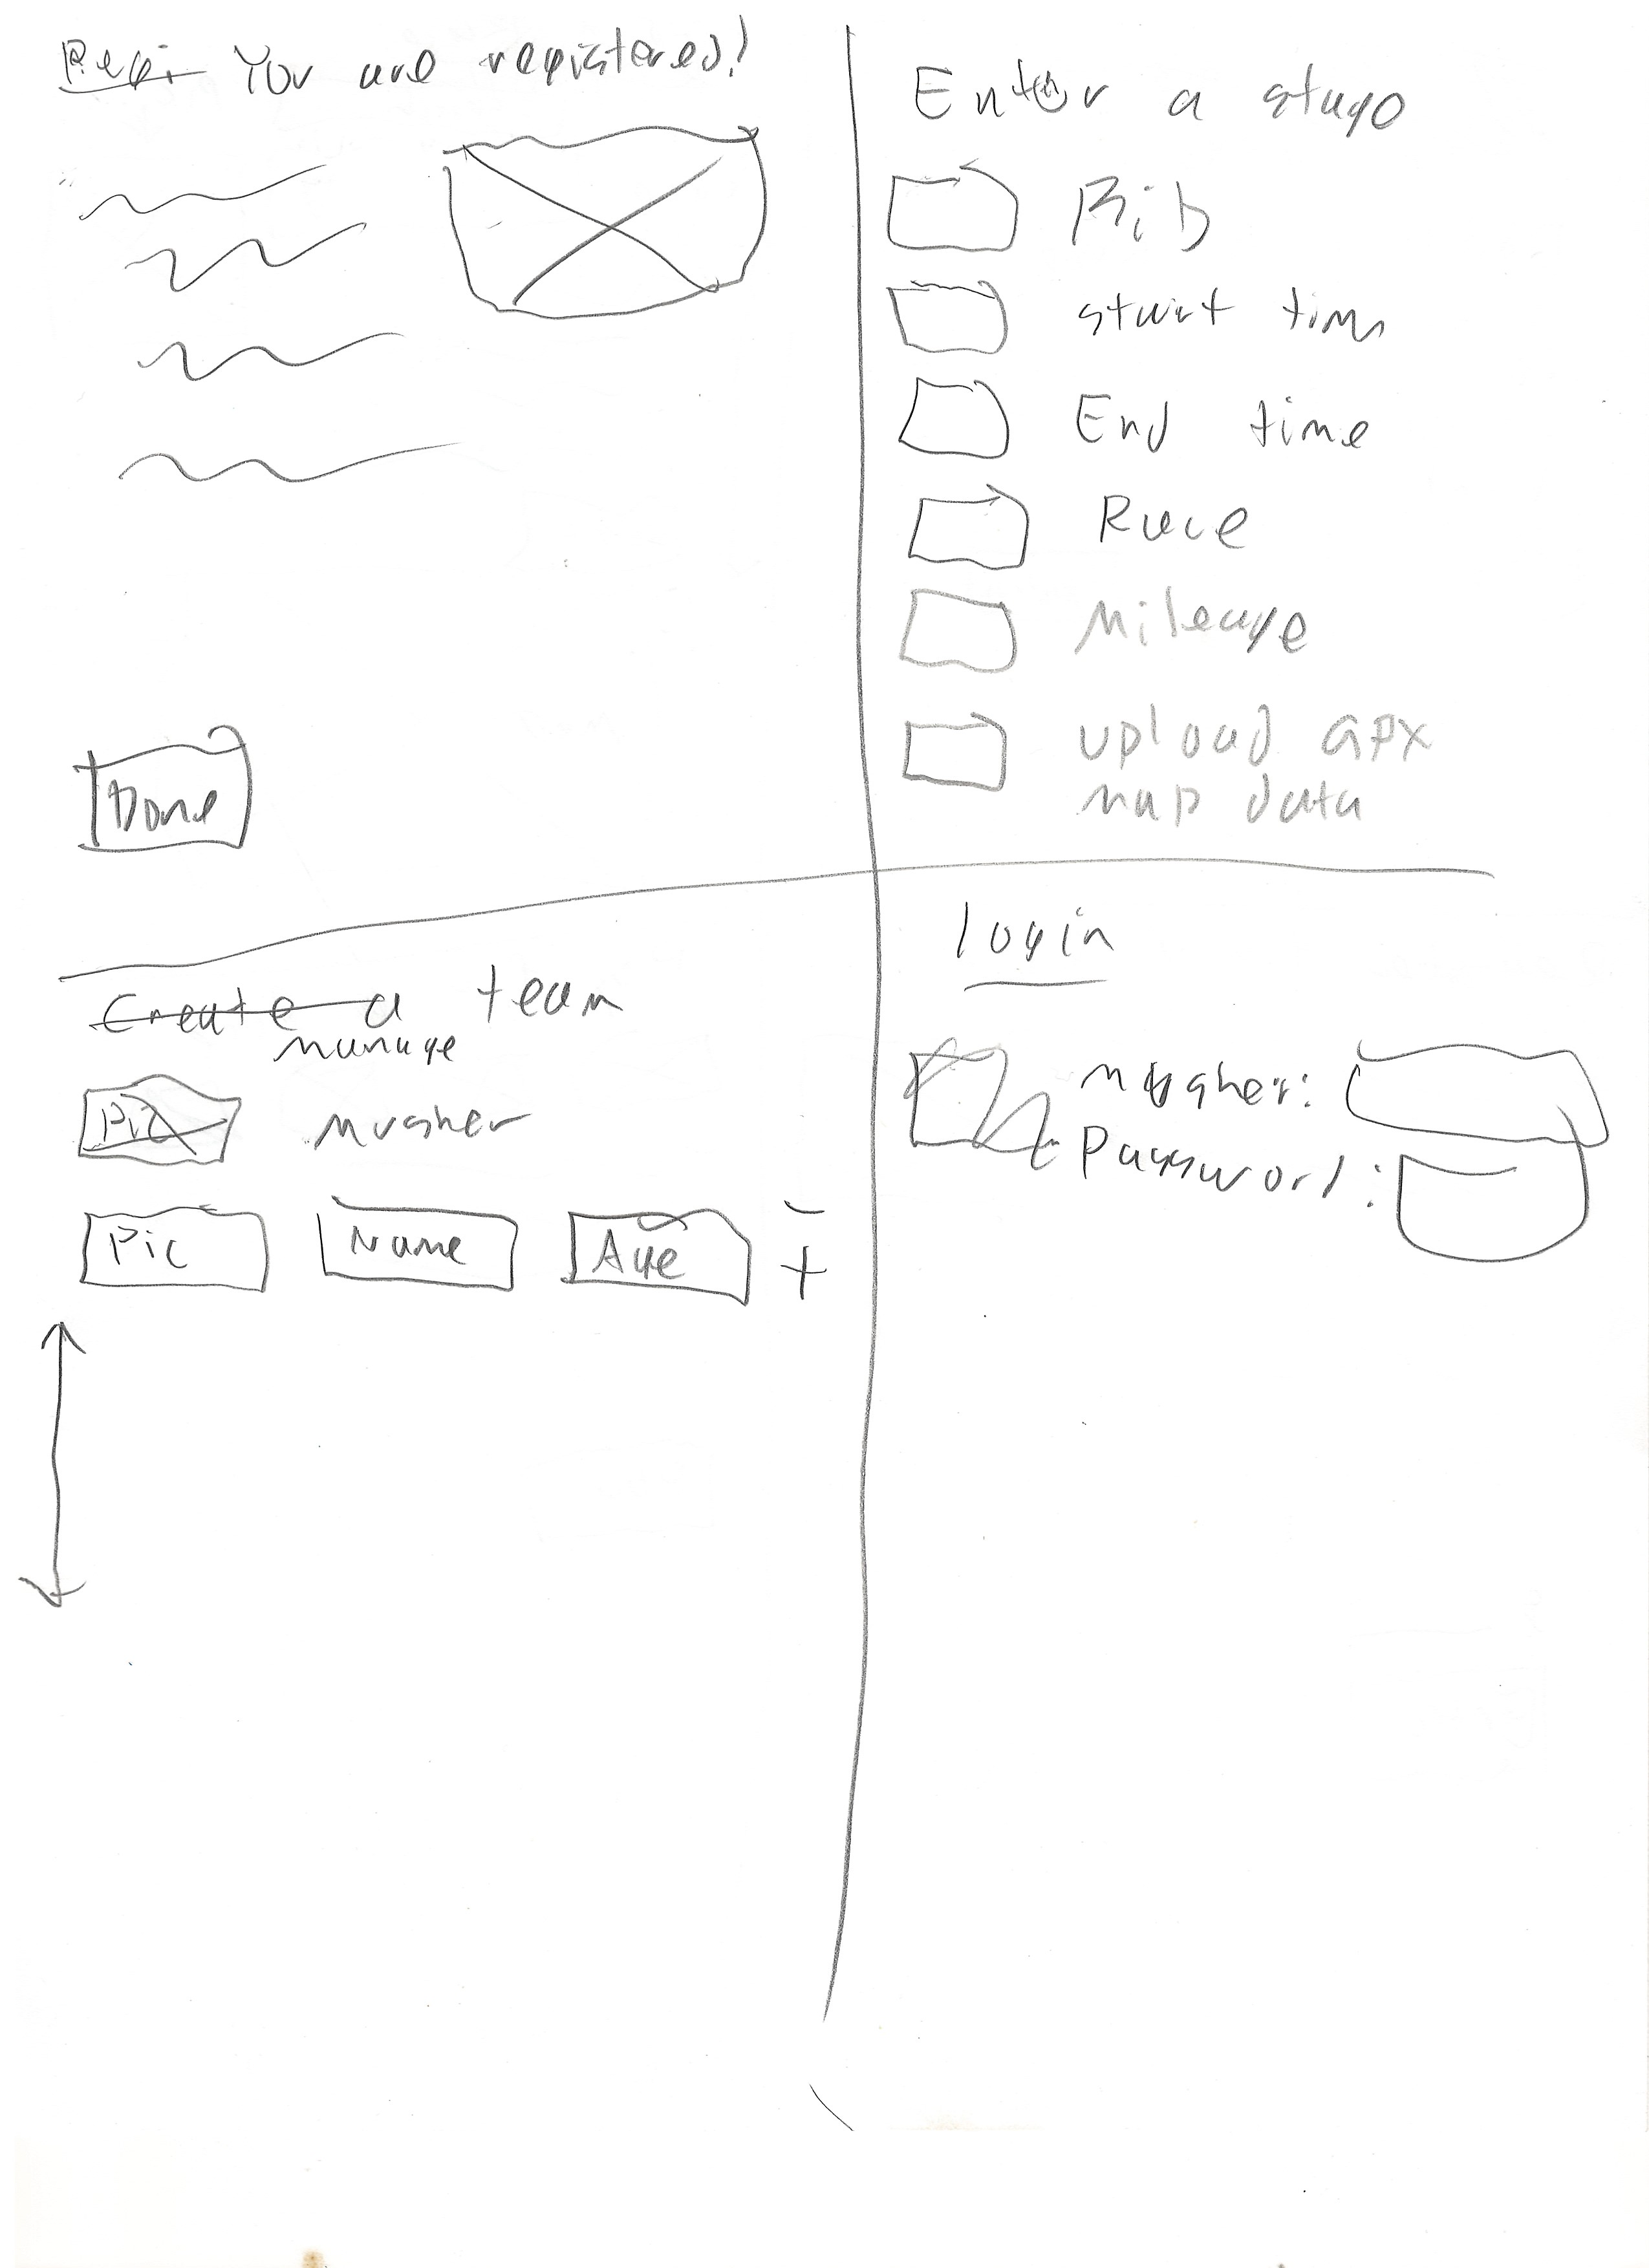 Regi. You are registered!
Done
Enter a stage
Bib
start time
End time
Race
Mileage
upload GPX
map data
Create a team
manage
Pic musher
Pic Name Age -
+
login
musher:
Password: